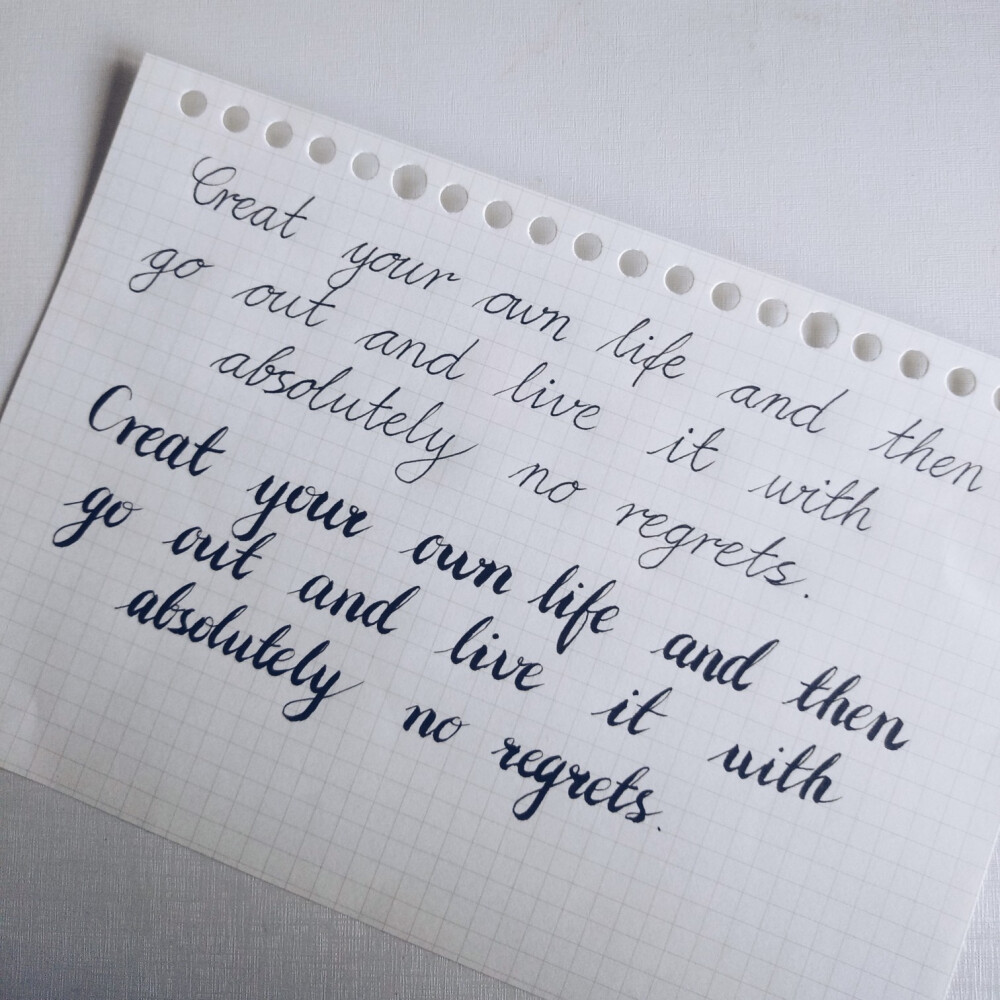 Creat your own life and then
go out and live it with
absolutely no regrets.
Creat your own life and then
go out and live it with
absolutely no regrets.